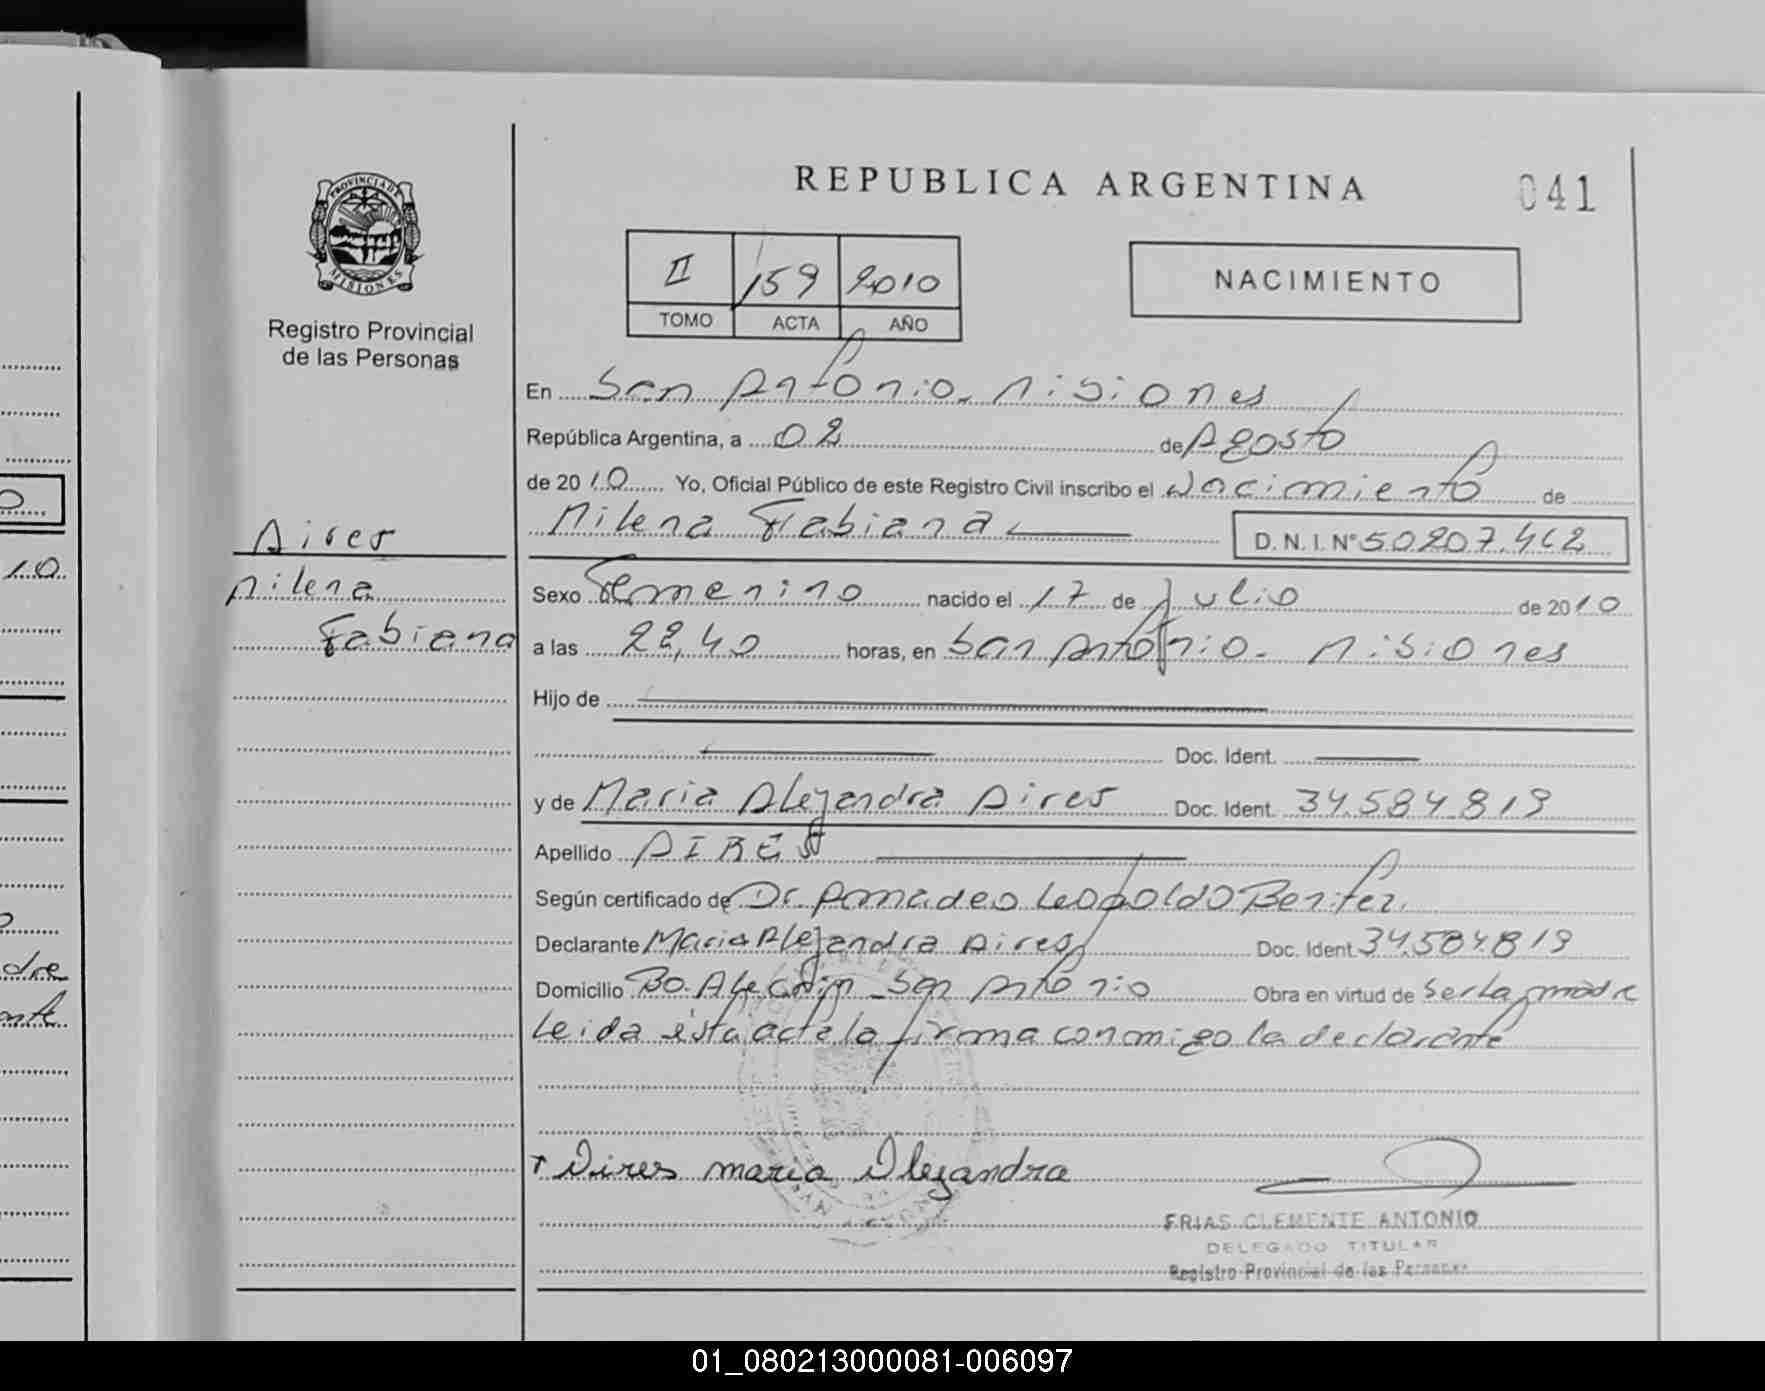 REPUBLICA ARGENTINA
041
PROVINCIA DE MISIONES
Registro Provincial
de las Personas
II 159 2010
TOMO ACTA AÑO
NACIMIENTO
En San Antonio. Misiones
República Argentina, a 02 de Agosto
de 2010 Yo, Oficial Público de este Registro Civil inscribo el Nacimiento de
Milena Fabiana
D. N. I. N° 50207.412
Aires
Milena
Fabiana
Sexo Femenino nacido el 17 de Julio de 2010
a las 22,40 horas, en San Antonio. Misiones
Hijo de
Doc. Ident.
y de Maria Alejandra Aires Doc. Ident. 34.584.819
Apellido AIRES
Según certificado de Dr. Amadeo Leopoldo Benitez.
Declarante Maria Alejandra Aires Doc. Ident. 34.584.819
Domicilio Bo. Alecrin - San Antonio Obra en virtud de ser la madre
Leida ésta acta la firma conmigo la declarante
Aires maria Alejandra
FRIAS CLEMENTE ANTONIO
DELEGADO TITULAR
Registro Provincial de las Personas
10
dre
01_080213000081-006097